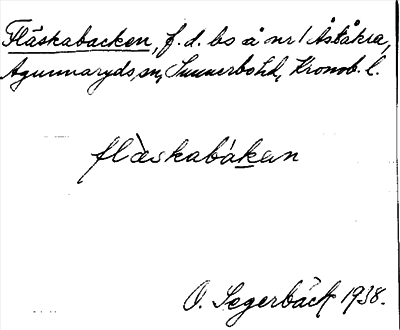 Fläskabacken, f. d. bs å nr 1 Åståkra,
Agunnaryds sn, Sunnerbo hd, Kronob. l.
flàskabákan
O. Segerbäck 1938.